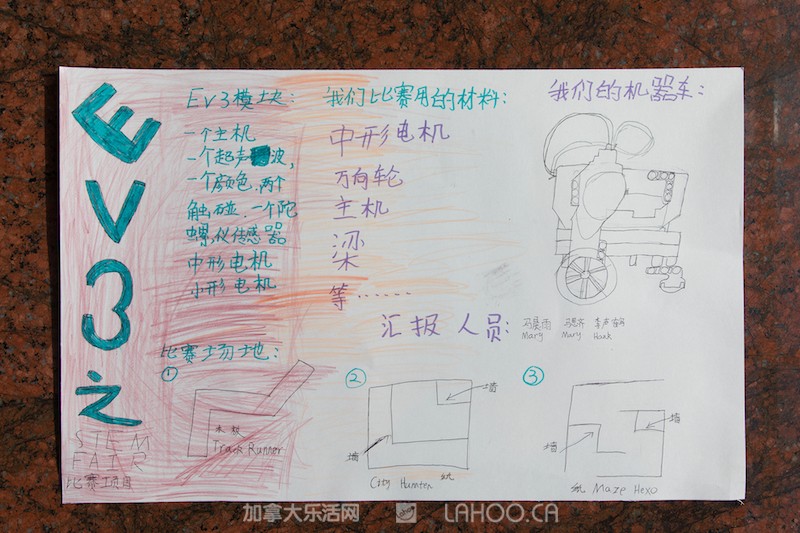 EV3之
STEM
FAIR
比赛项目
EV3模块：
一个主机
一个超声波，
一个颜色，两个
触碰，一个陀
螺仪传感器
中形电机
小形电机
我们比赛用的材料：
中形电机
万向轮
主机
梁
等……
我们的机器车：
汇报人员：
Mary Mary Hank
比赛场地：
①
木板
Track Runner
②
墙
墙
City Humten
③
墙
墙
Maze Hexo
加拿大乐活网 LAHOO.CA